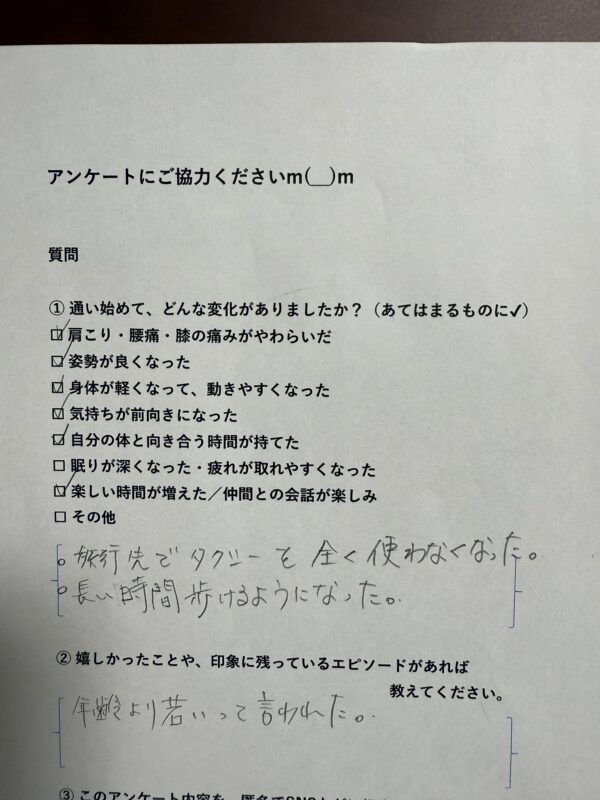 アンケートにご協力くださいm(__)m
質問
① 通い始めて、どんな変化がありましたか？（あてはまるものに✓）
☑ 肩こり・腰痛・膝の痛みがやわらいだ
☑ 姿勢が良くなった
☑ 身体が軽くなって、動きやすくなった
☑ 気持ちが前向きになった
☑ 自分の体と向き合う時間が持てた
☐ 眠りが深くなった・疲れが取れやすくなった
☑ 楽しい時間が増えた／仲間との会話が楽しみ
☐ その他
○旅行先でタクシーを全く使わなくなった。
○長い時間歩けるようになった。
② 嬉しかったことや、印象に残っているエピソードがあれば
教えてください。
年齢より若いって言われた。
③ このアンケート内容を、匿名でSNSなどに